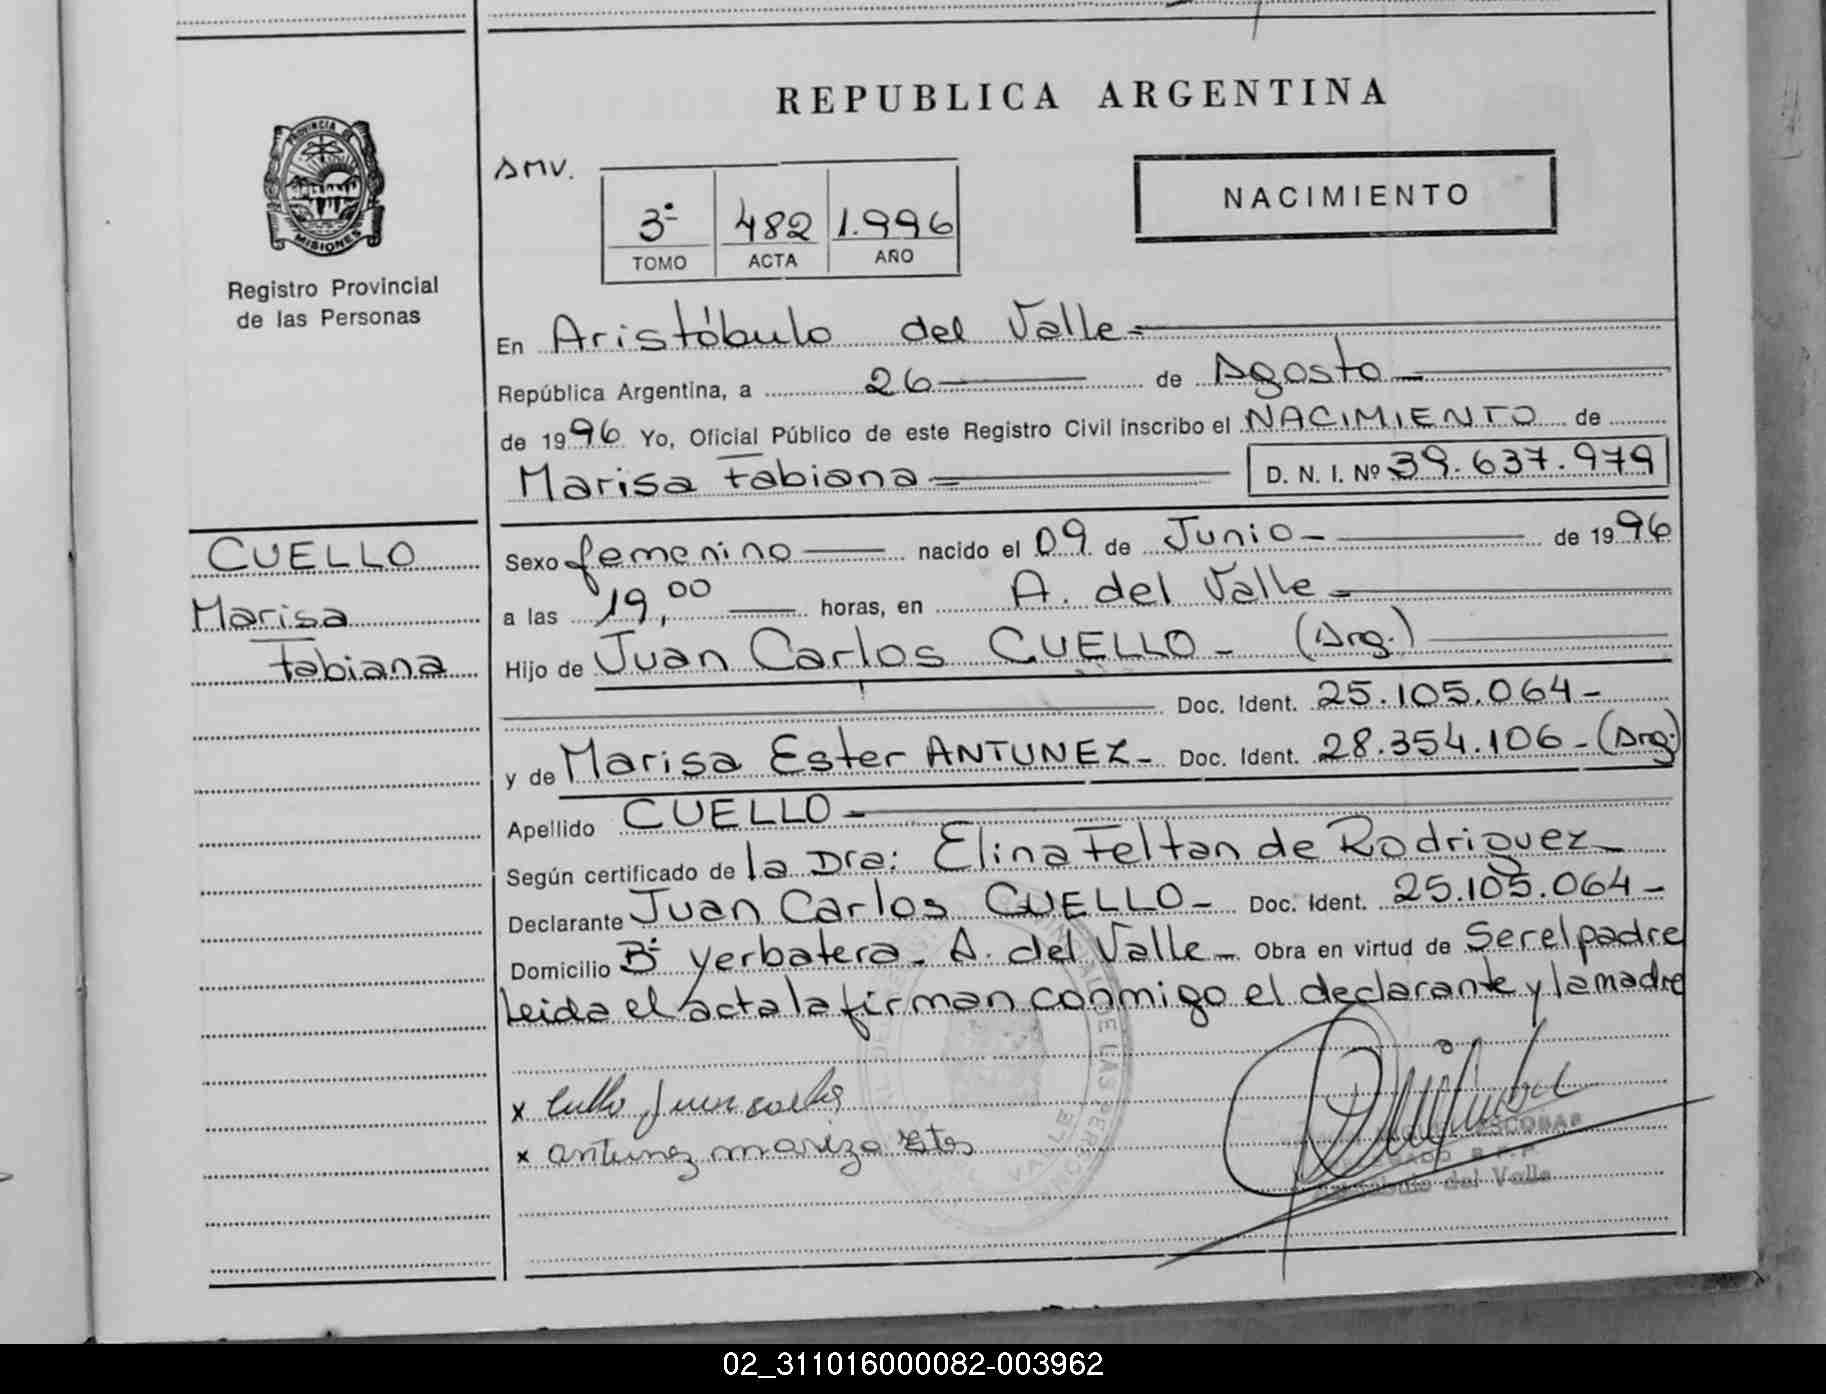 REPUBLICA ARGENTINA
PROVINCIA DE
MISIONES
Registro Provincial
de las Personas
AMV.
NACIMIENTO
3º 482 1.996
TOMO ACTA AÑO
En Aristóbulo del Valle
República Argentina, a 26 de Agosto
de 1996 Yo, Oficial Público de este Registro Civil inscribo el NACIMIENTO de
Marisa Fabiana D. N. I. Nº 39.637.979
CUELLO
Marisa
Fabiana
Sexo femenino nacido el 09 de Junio de 1996
a las 19,00 horas, en A. del Valle
Hijo de Juan Carlos CUELLO - (Arg.)
Doc. Ident. 25.105.064-
y de Marisa Ester ANTUNEZ- Doc. Ident. 28.354.106-(Arg.)
Apellido CUELLO
Según certificado de la Dra: Elina Feltan de Rodriguez
Declarante Juan Carlos CUELLO- Doc. Ident. 25.105.064-
Domicilio Bº yerbatera- A. del Valle- Obra en virtud de Ser el padre
Leida el acta la firman conmigo el declarante y la madre
x Cuello Juan Carlos
x antunez mariza Ester
ESCOBAR
del Valle
02_311016000082-003962